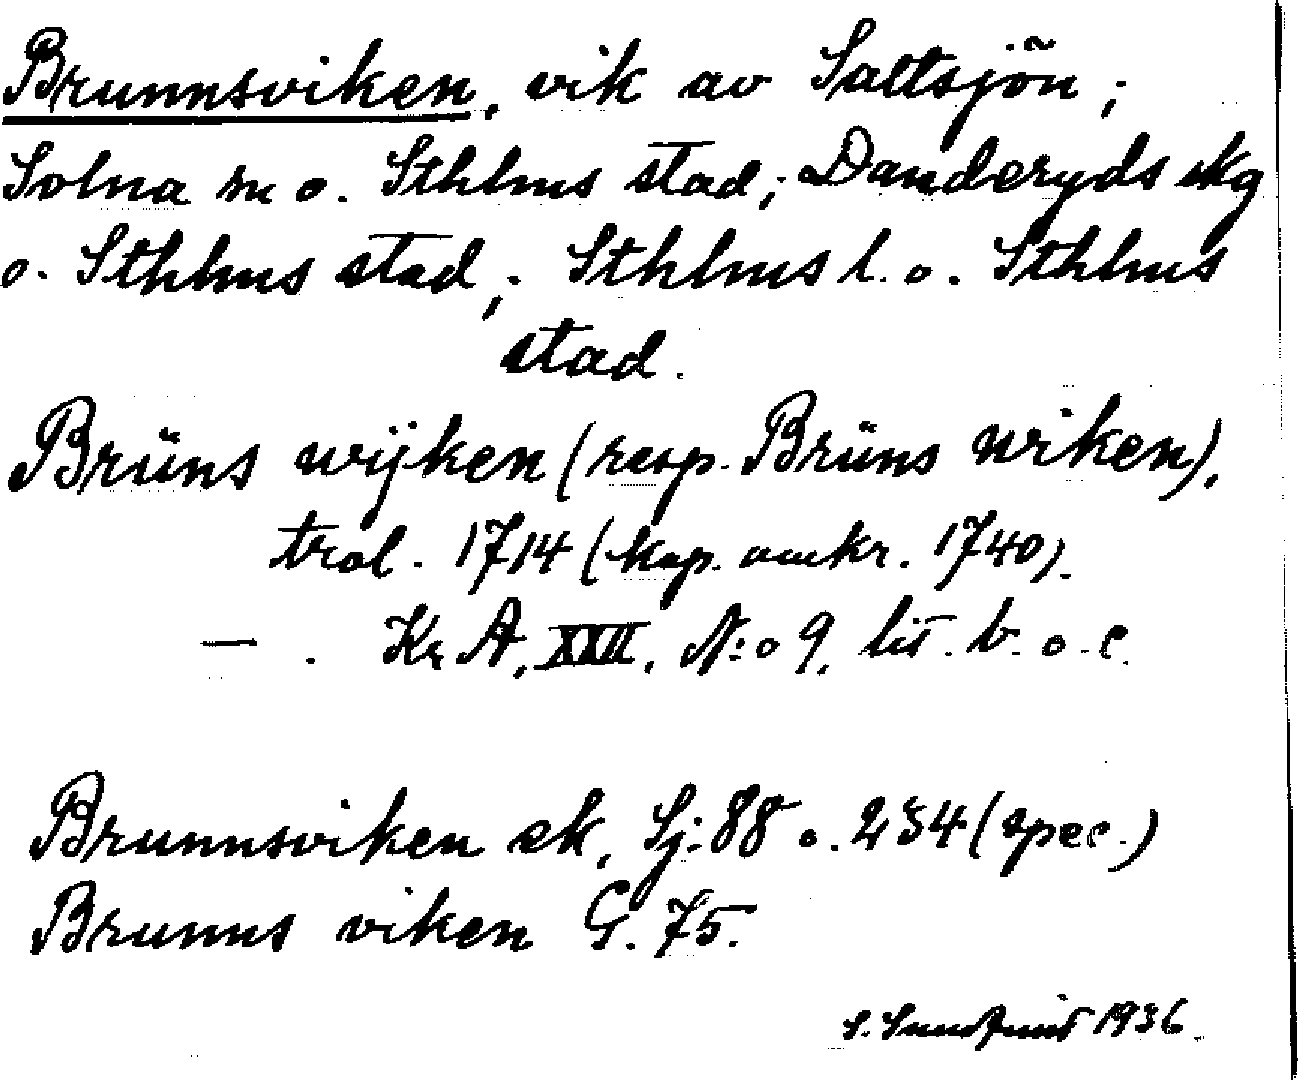 Brunnsviken, vik av Saltsjön;
Solna sn o. Sthlms stad; Danderyds skg
o. Sthlms stad; Sthlms l. o. Sthlms
stad.
Brüns wijken (resp. Brüns wiken),
trol. 1714 (kop. omkr. 1740).
— . Kr A, XXII, N:o 9, lit. b. o. c.
Brunnsviken ek, Sj: 88 o. 234 (spec.)
Brunns viken G. 75.
S. Sundqvist 1936.